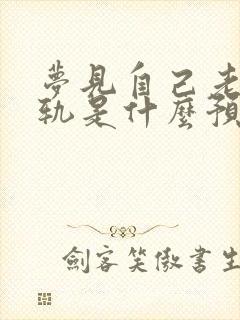 夢見自己老
軌是什麼預
劍客笑傲書生